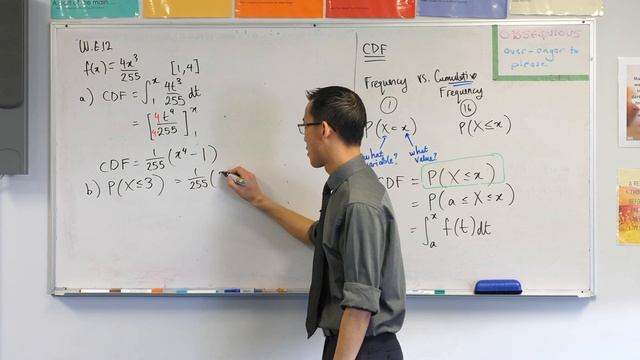 W.E 12
f(x) = 4x³/255 [1,4]
a) CDF = ∫₁ˣ 4t³/255 dt
= [4t⁴/4·255]₁ˣ
CDF = 1/255 (x⁴ − 1)
b) P(X ≤ 3) = 1/255 (
CDF
Frequency vs. Cumulative Frequency
1 16
P(X = x) P(X ≤ x)
what variable? what value?
CDF = P(X ≤ x)
= P(a ≤ X ≤ x)
= ∫ₐˣ f(t) dt
OBSEQUIOUS
over-eager to
please